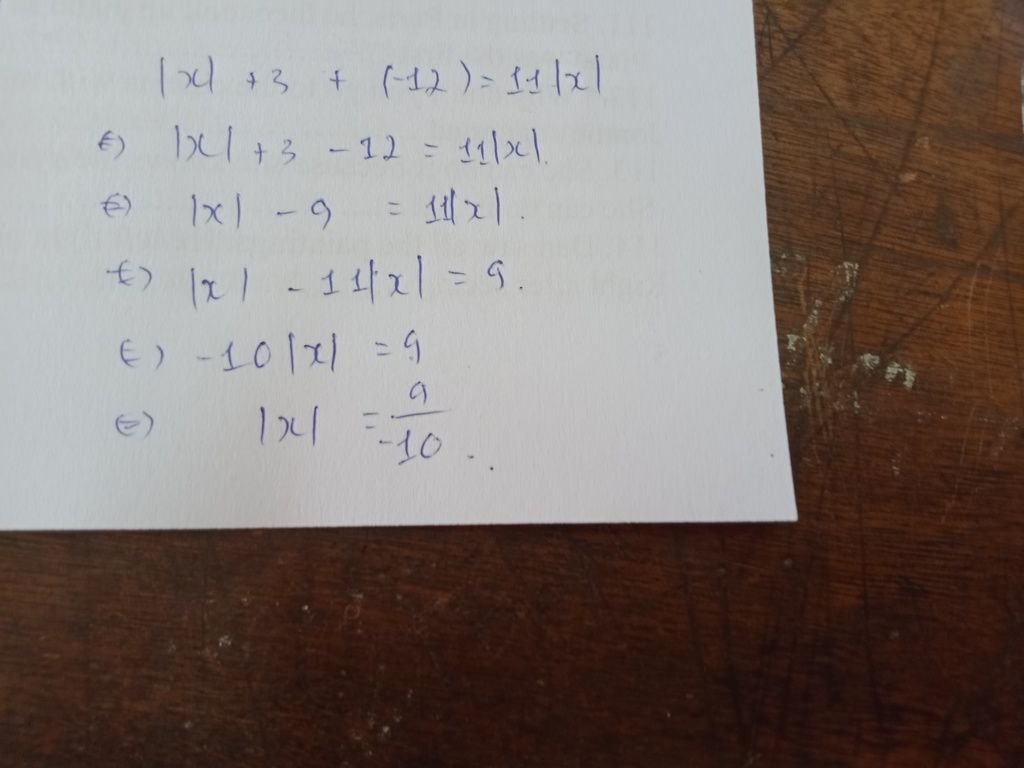 |x| + 3 + (-12) = 11|x|
⇔ |x| + 3 - 12 = 11|x|.
⇔ |x| - 9 = 11|x|.
⇔ |x| - 11|x| = 9.
⇔ -10|x| = 9
⇔ |x| = 9/-10.